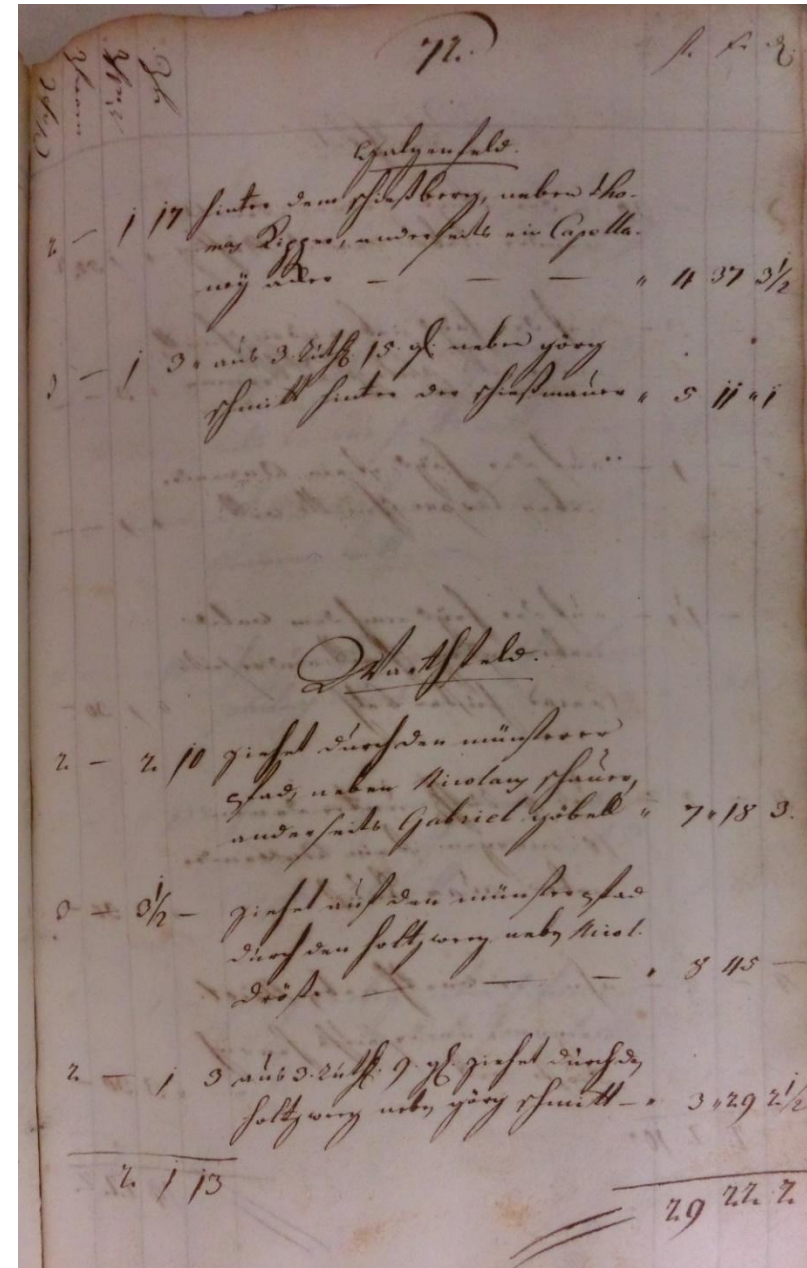 72.
Galgenfeld.
2 — 1 17 hinter dem schießberg, neben Tho-
mas Kipper, anderseits ein Capella-
neÿ acker — — — " 4 37 3½
3 — 1 3 " aus 3 Ruth 15. neben görg
schmitt hinter der schießmauer " 5 11 " 1
Warthfeld.
2 — 2 10 ziehet durch den münsterer
pfad, neben Nicolaus schauer,
anderseits Gabriel göbell " 7 " 18 3.
3 — 3½ — ziehet auf den münsterpfad
durch den holtzweeg neben Nicol.
— — — " 8 45 —
2 — 1 3 aus 3. Ruth. 9. ziehet durch den
holtzweeg neben görg schmitt — " 3 " 29 2½
2 1 13
29 22 2